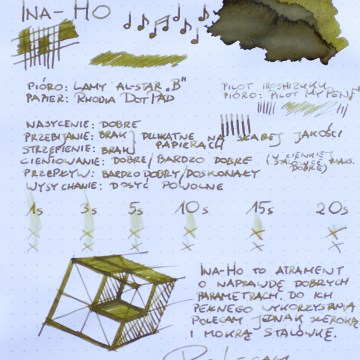 INA-HO
PIÓRO: LAMY AL-STAR „B”
PAPIER: RHODIA DOTPAD
PILOT IROSHIZUKU
PIÓRO: PILOT MY PEN
NASYCENIE: DOBRE
PRZEBIJANIE: BRAK } DELIKATNE NA SŁABEJ JAKOŚCI
STRZĘPIENIE: BRAK } PAPIERACH
CIENIOWANIE: DOBRE/BARDZO DOBRE
PRZEPŁYW: BARDZO DOBRY/DOSKONAŁY
WYSYCHANIE: DOSYĆ POWOLNE
1s 3s 5s 10s 15s 20s
INA-HO TO ATRAMENT
O NAPRAWDĘ DOBRYCH
PARAMETRACH. DO ICH
PEŁNEGO WYKORZYSTANIA
POLECAM JEDNAK SZEROKĄ
I MOKRĄ STALÓWKĘ.